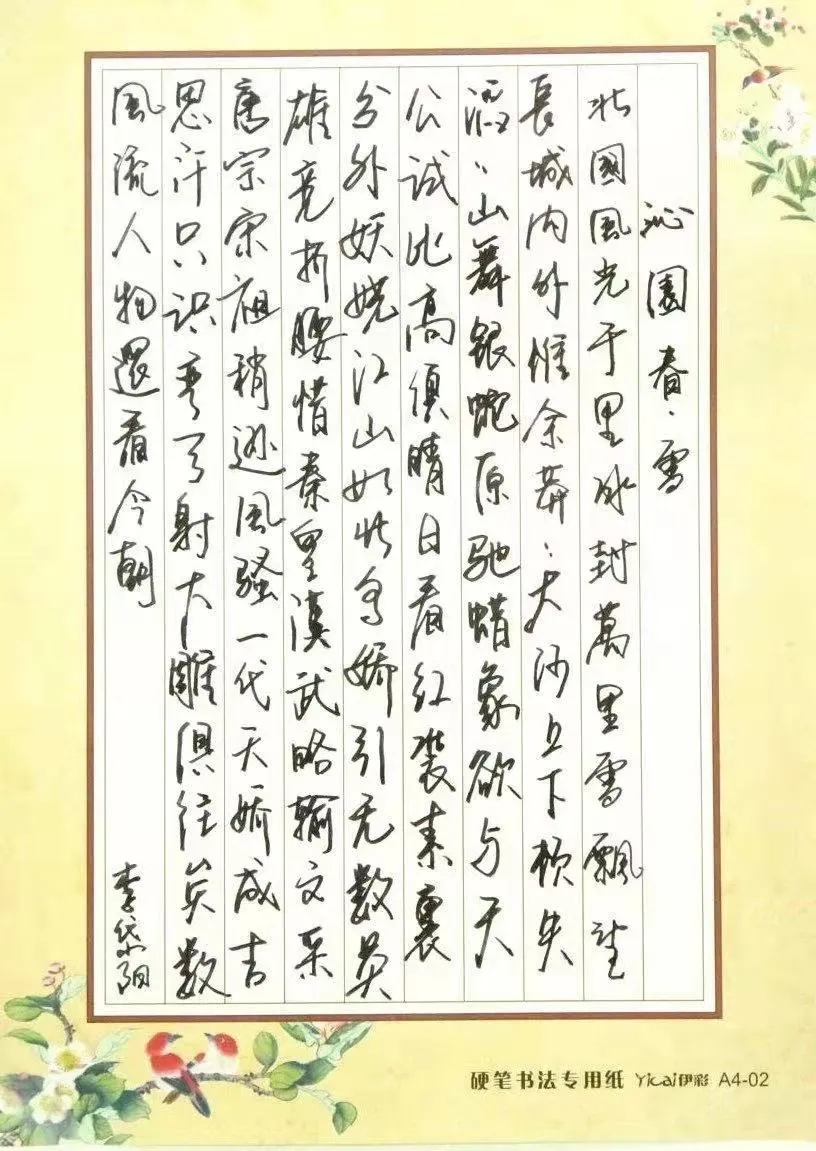 沁園春·雪
北國風光千里冰封萬里雪飄望
長城内外惟余莽〻大河上下顿失
滔〻山舞银蛇原驰蜡象欲与天
公试比高须晴日看红装素裹
分外妖娆江山如此多娇引无数英
雄竞折腰惜秦皇漢武略输文采
唐宗宋祖稍逊風骚一代天娇成吉
思汗只识弯弓射大雕俱往矣数
風流人物還看今朝
李
硬笔书法专用纸 Yicai伊彩 A4-02